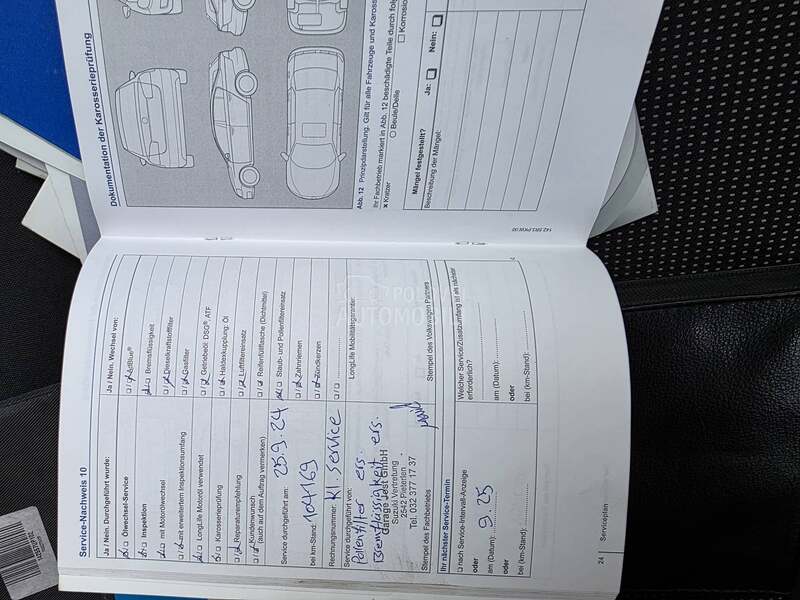 Service-Nachweis 10
Ja / Nein. Durchgeführt wurde:
Ölwechsel-Service
Inspektion
mit Motorölwechsel
mit erweitertem Inspektionsumfang
LongLife Motoröl verwendet
Karosserieprüfung
Reparaturempfehlung
Kundenwunsch
(auch auf dem Auftrag vermerken)
Service durchgeführt am: 25.9.24
bei km-Stand: 104169
Rechnungsnummer: Kl. Service
Service durchgeführt von:
Pollenfilter ers.
Bremsflüssigkeit ers.
Garage Jest GmbH
Suzuki Vertretung
2542 Pieterlen
Tel. 032 377 17 37
Stempel des Fachbetriebs
Ihr nächster Service-Termin
nach Service-Intervall-Anzeige
oder
am (Datum): 9.25
oder
bei (km-Stand):
24 Serviceplan
Ja / Nein. Wechsel von:
AdBlue®
Bremsflüssigkeit
Dieselkraftstofffilter
Gasfilter
Getriebeöl: DSG®, ATF
Haldexkupplung: Öl
Luftfiltereinsatz
Reifenfüllflasche (Dichtmittel)
Staub- und Pollenfiltereinsatz
Zahnriemen
Zündkerzen
LongLife Mobilitätsgarantie:
Stempel des Volkswagen Partners
Welcher Service/Zusatzumfang ist als nächster
erforderlich?
am (Datum):
oder
bei (km-Stand):
POLOVNI
AUTOMOBILI
Dokumentation der Karosserieprüfung
Abb. 12 Prinzipdarstellung. Gilt für alle Fahrzeuge und Karosse
Ihr Fachbetrieb markiert in Abb. 12 beschädigte Teile durch folg
× Kratzer
Beule/Delle
Korrosio
Mängel festgestellt?
Ja:
Nein:
Beschreibung der Mängel: